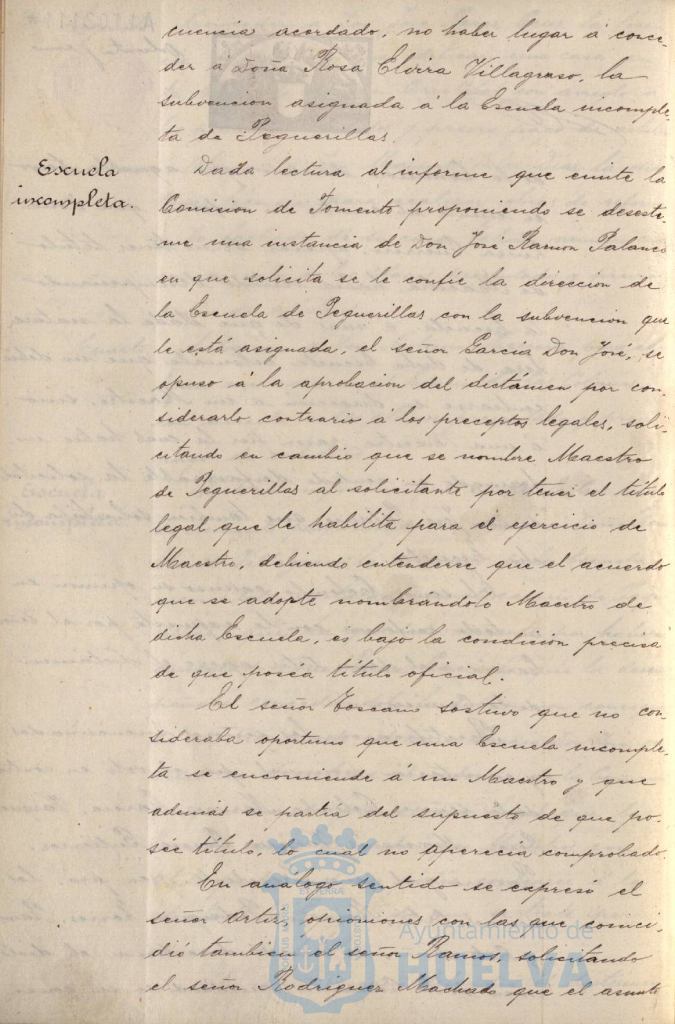 cuencia acordado, no haber lugar á conce-
der á Doña Rosa Elvira Villagraso, la
subvencion asignada á la Escuela incomple-
ta de Peguerillas.
Escuela
incompleta.
Dada lectura al informe que emite la
Comision de Fomento proponiendo se deseste-
me una instancia de Don José Ramon Palanco
en que solicita se le confie la direccion de
la Escuela de Peguerillas con la subvencion que
le está asignada, el señor Garcia Don José, se
opuso á la aprobacion del dictámen por con-
siderarlo contrario á los preceptos legales, soli-
citando en cambio que se nombre Maestro
de Peguerillas al solicitante por tener el título
legal que le habilita para el ejercicio de
Maestro, debiendo entenderse que el acuerdo
que se adopte nombrándolo Maestro de
dicha Escuela, es bajo la condición precisa
de que poséa título oficial.
El señor Toscano sostuvo que no con-
sideraba oportuno que una Escuela incomple-
ta se encomiende á un Maestro y que
además se partía del supuesto de que po-
sée título, lo cual no aparecia comprobado.
En análogo sentido se expresó el
señor Ortiz, opiniones con las que coinci-
dió tambien el señor Ramos, solicitando
el señor Rodriguez Machado que el asunto
Ayuntamiento de
HUELVA